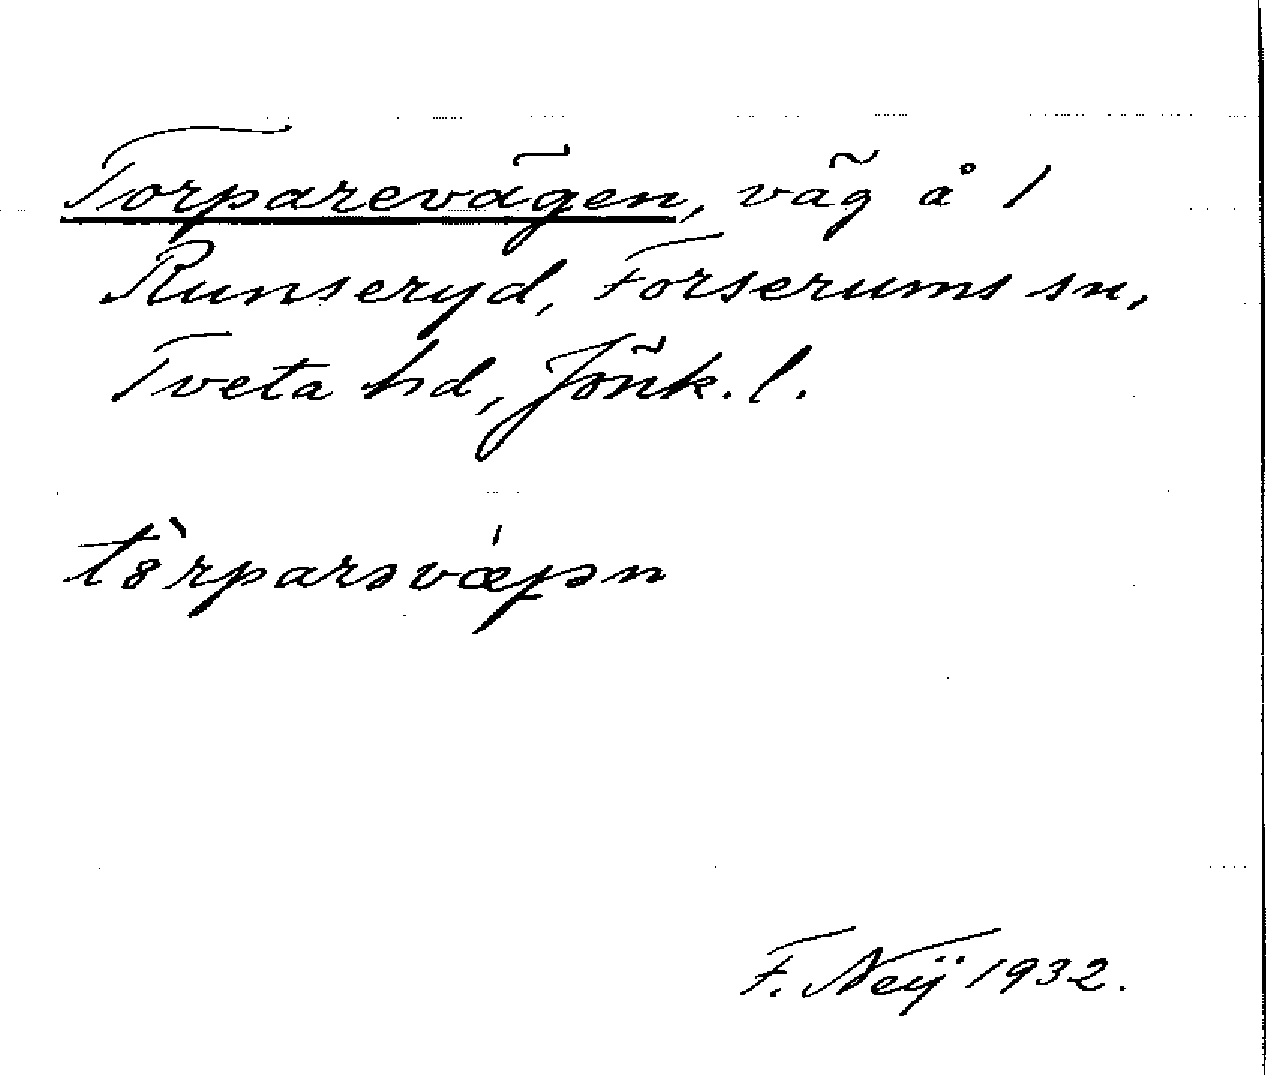 Torparevägen, väg å 1
Runseryd, Forserums sn,
Tveta hd, Jönk. l.
tȣ̀rparəvǽɟən
F. Neij 1932.